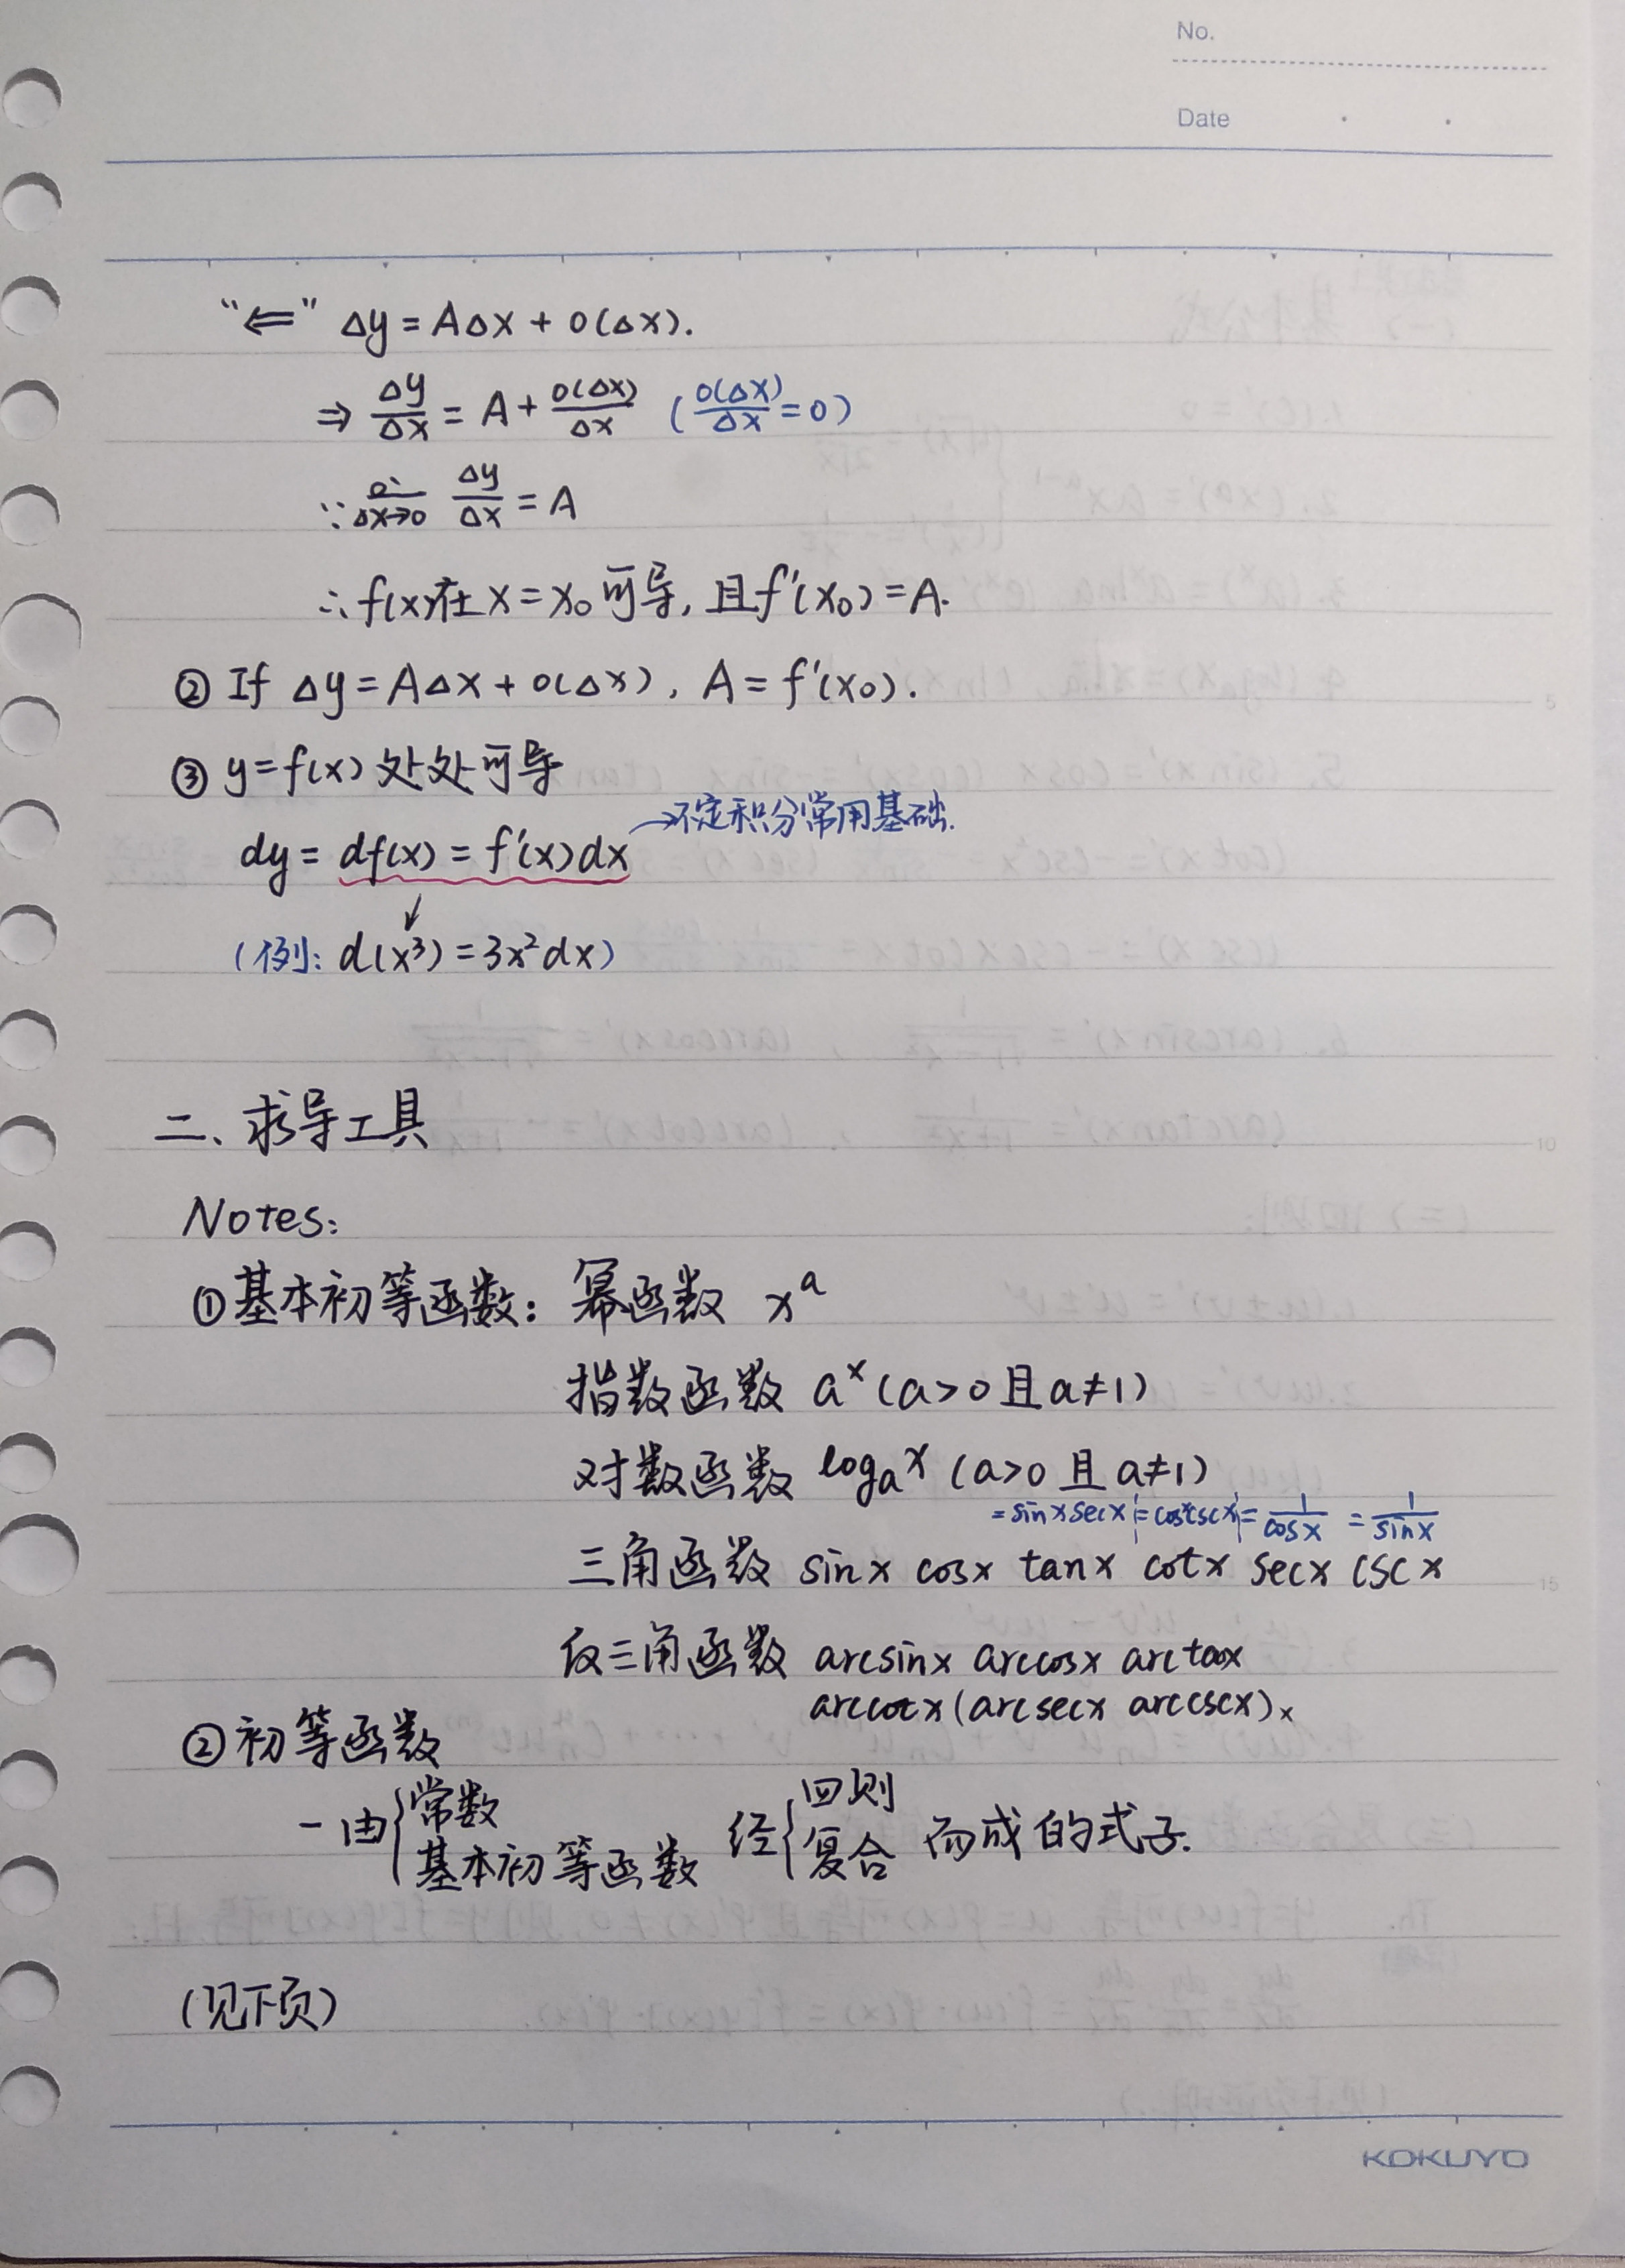 No.
Date
“⇐” Δy = AΔx + o(Δx).
⇒ Δy/Δx = A + o(Δx)/Δx (o(Δx)/Δx = 0)
∵ Δx→0 Δy/Δx = A
∴ f(x)在 x = x₀ 可导, 且f′(x₀) = A.
② If Δy = AΔx + o(Δx), A = f′(x₀).
③ y = f(x) 处处可导
→不定积分常用基础.
dy = df(x) = f′(x)dx
↓
(例: d(x³) = 3x²dx)
二、求导工具
Notes:
①基本初等函数: 幂函数 xᵃ
指数函数 aˣ (a>0 且 a≠1)
对数函数 logₐˣ (a>0 且 a≠1)
=sinxsecx =cosxcscx = 1/cosx = 1/sinx
三角函数 sinx cosx tanx cotx secx cscx
反三角函数 arcsinx arccosx arctanx
arccotx (arcsecx arccscx)ₓ
②初等函数
一由{常数 基本初等函数 经{四则 复合 而成的式子.
(见下页)
5
10
15
KOKUYO